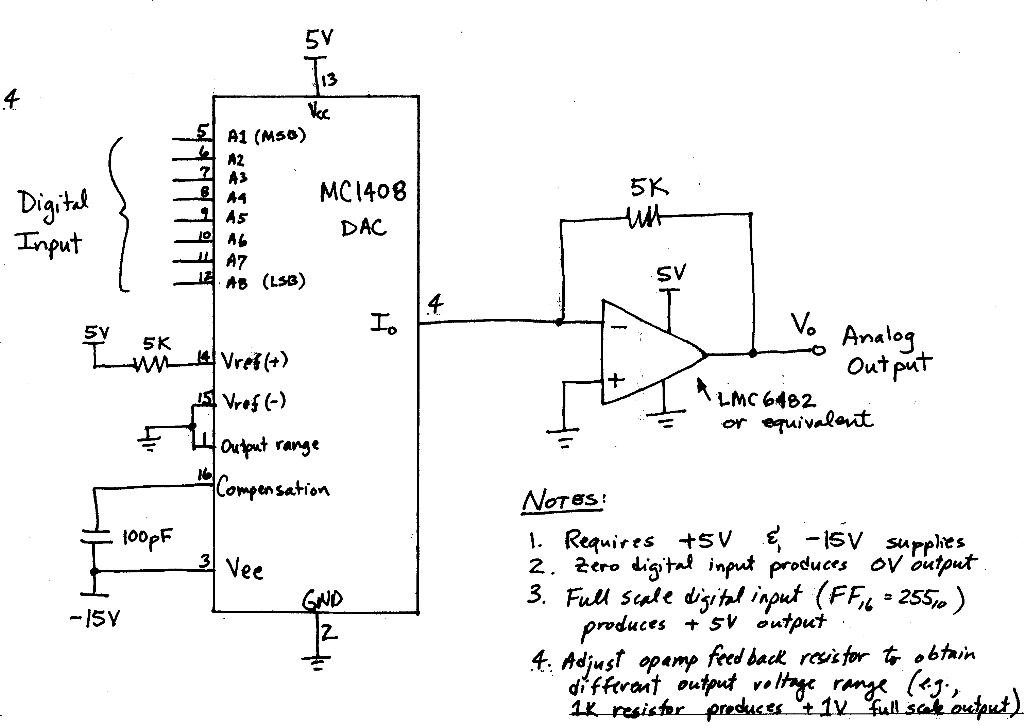 5V
13
4
Vcc
5 A1 (MSB)
6 A2
7 A3
8 A4
9 A5
10 A6
11 A7
12 A8 (LSB)
Digital
Input
MC1408
DAC
5K
5V
4
Io
5V
5K
14 Vref(+)
15 Vref(-)
1 Output range
16 Compensation
100pF
3 Vee
-15V
GND
2
−
+
Vo
Analog
Output
LMC6482
or equivalent
NOTES:
1. Requires +5V & -15V supplies
2. Zero digital input produces 0V output
3. Full scale digital input (FF₁₆ = 255₁₀)
produces + 5V output
4. Adjust opamp feedback resistor to obtain
different output voltage range (e.g.,
1K resistor produces +1V full scale output)